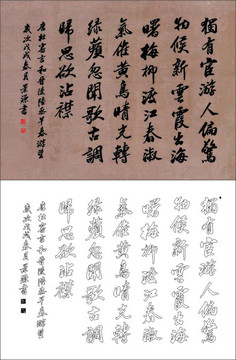 獨有宦游人偏驚
物候新雲霞出海
曙梅柳渡江春淑
氣催黃鳥晴光轉
綠蘋忽聞歌古調
歸思欲沾襟
唐杜審言和晉陵陸丞早春游望
歲次戊戌春月書
獨有宦游人偏驚
物候新雲霞出海
曙梅柳渡江春淑
氣催黃鳥晴光轉
綠蘋忽聞歌古調
歸思欲沾襟
唐杜審言和晉陵陸丞早春游望
歲次戊戌春月書